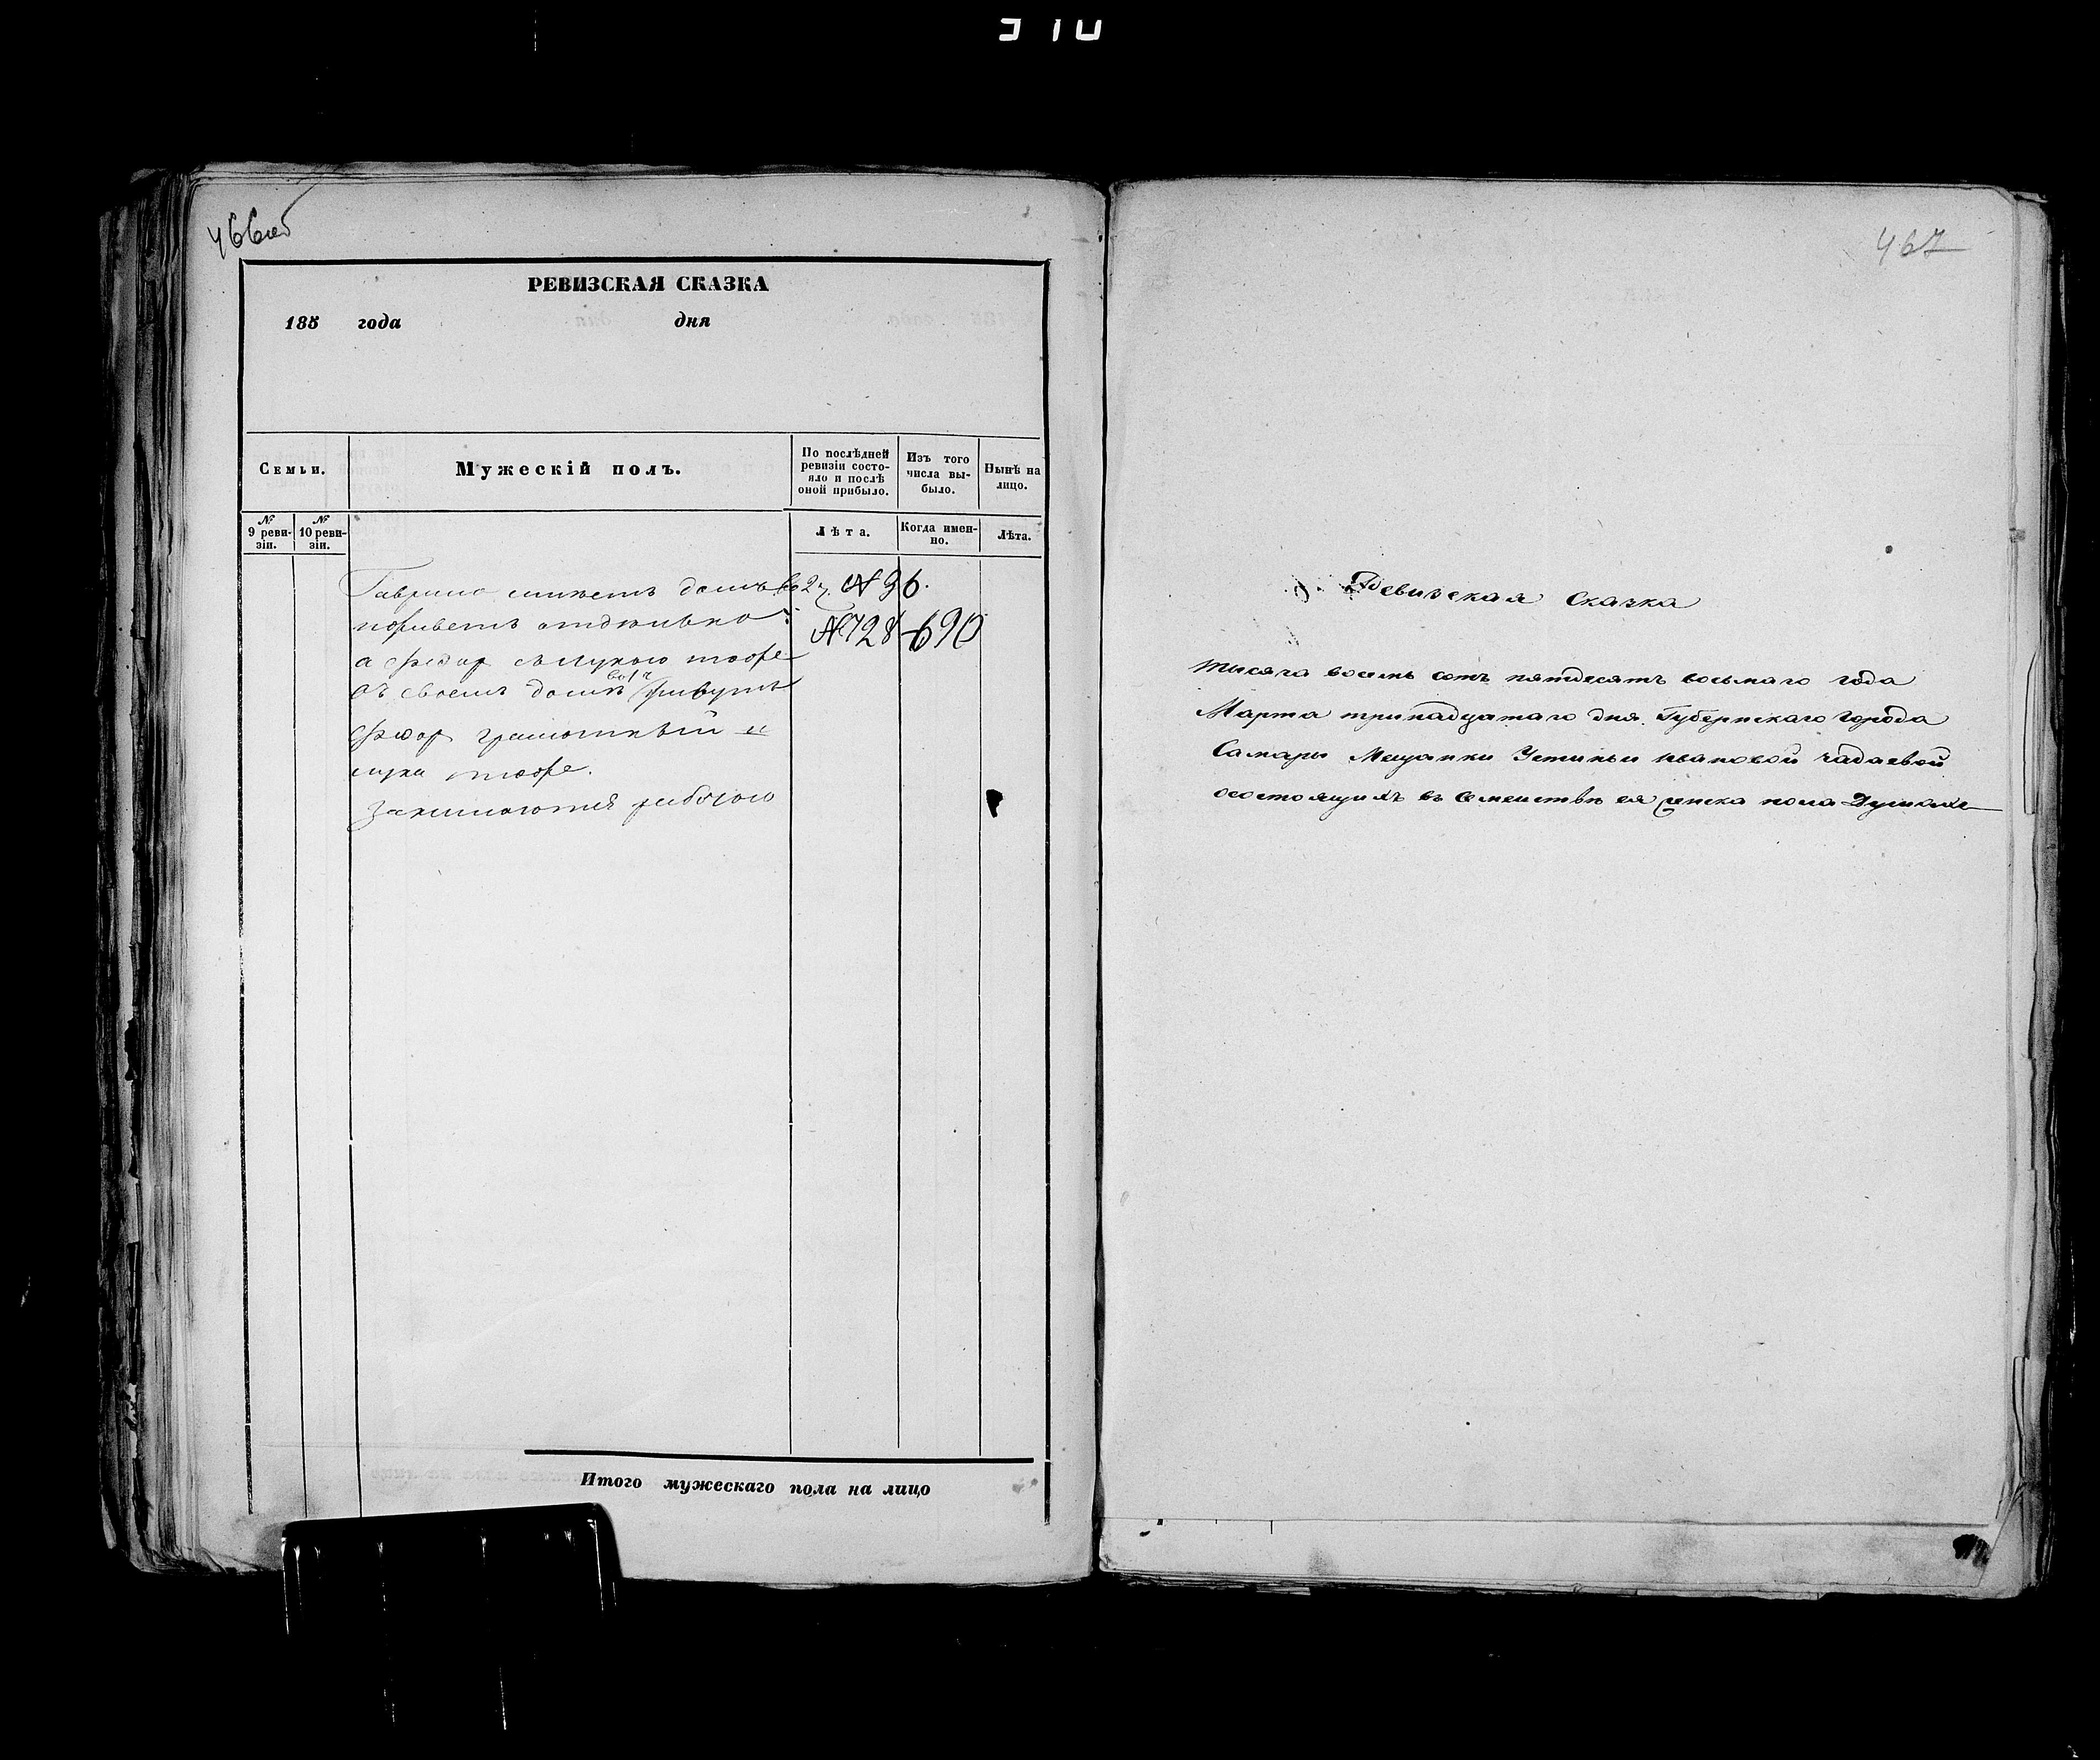 466об
РЕВИЗСКАЯ СКАЗКА
185 года дня
Семьи.
Мужескій полъ.
По послѣдней ревизіи состо-
яло и послѣ
оной прибыло.
Изъ того
числа вы-
было.
Нынѣ на
лицо.
№
9 реви-
зіи.
№
10 реви-
зіи.
Лѣта.
Когда имен-
но.
Лѣта.
Гаврило имѣетъ домъ во 2 ч. № 96.
а Федор
№ 728 690
въ своемъ домѣ во 1 ч живутъ
Федор грамотный и
лука тоже.
Занимаются работою
Итого мужескаго пола на лицо
467
Ревизская Сказка
Тысяча восемь сотъ пятдесятъ восьмаго года
Марта тринадцатаго дня. Губернскаго города
Самары Мещанки Устиньи Ивановой Чадаевой
осостоящихъ въ Семействѣ ея женска пола Душахъ